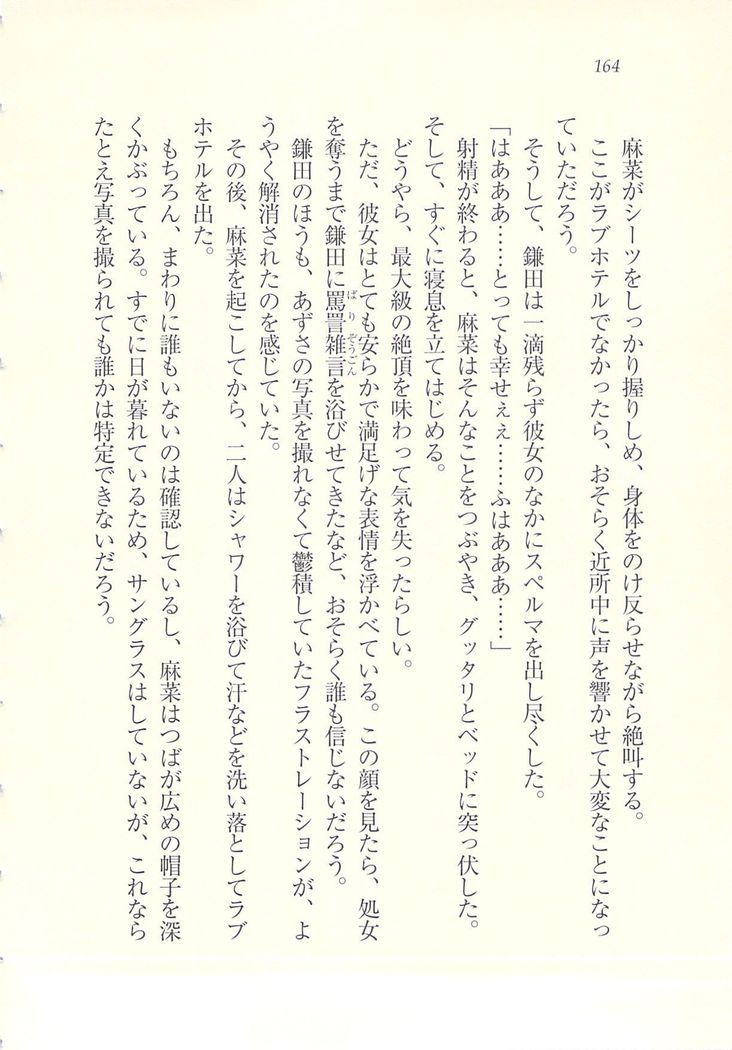 164
麻菜がシーツをしっかり握りしめ、身体をのけ反らせながら絶叫する。
ここがラブホテルでなかったら、おそらく近所中に声を響かせて大変なことになっ
ていただろう。
そうして、鎌田は一滴残らず彼女のなかにスペルマを出し尽くした。
「はあああ……とっても幸せぇぇ……ふはあああ……」
射精が終わると、麻菜はそんなことをつぶやき、グッタリとベッドに突っ伏した。
そして、すぐに寝息を立てはじめる。
どうやら、最大級の絶頂を味わって気を失ったらしい。
ただ、彼女はとても安らかで満足げな表情を浮かべている。この顔を見たら、処女
を奪うまで鎌田に罵詈雑言を浴びせてきたなど、おそらく誰も信じないだろう。
ばりぞうごん
鎌田のほうも、あずさの写真を撮れなくて鬱積していたフラストレーションが、よ
うやく解消されたのを感じていた。
その後、麻菜を起こしてから、二人はシャワーを浴びて汗などを洗い落としてラブ
ホテルを出た。
もちろん、まわりに誰もいないのは確認しているし、麻菜はつばが広めの帽子を深
くかぶっている。すでに日が暮れているため、サングラスはしていないが、これなら
たとえ写真を撮られても誰かは特定できないだろう。